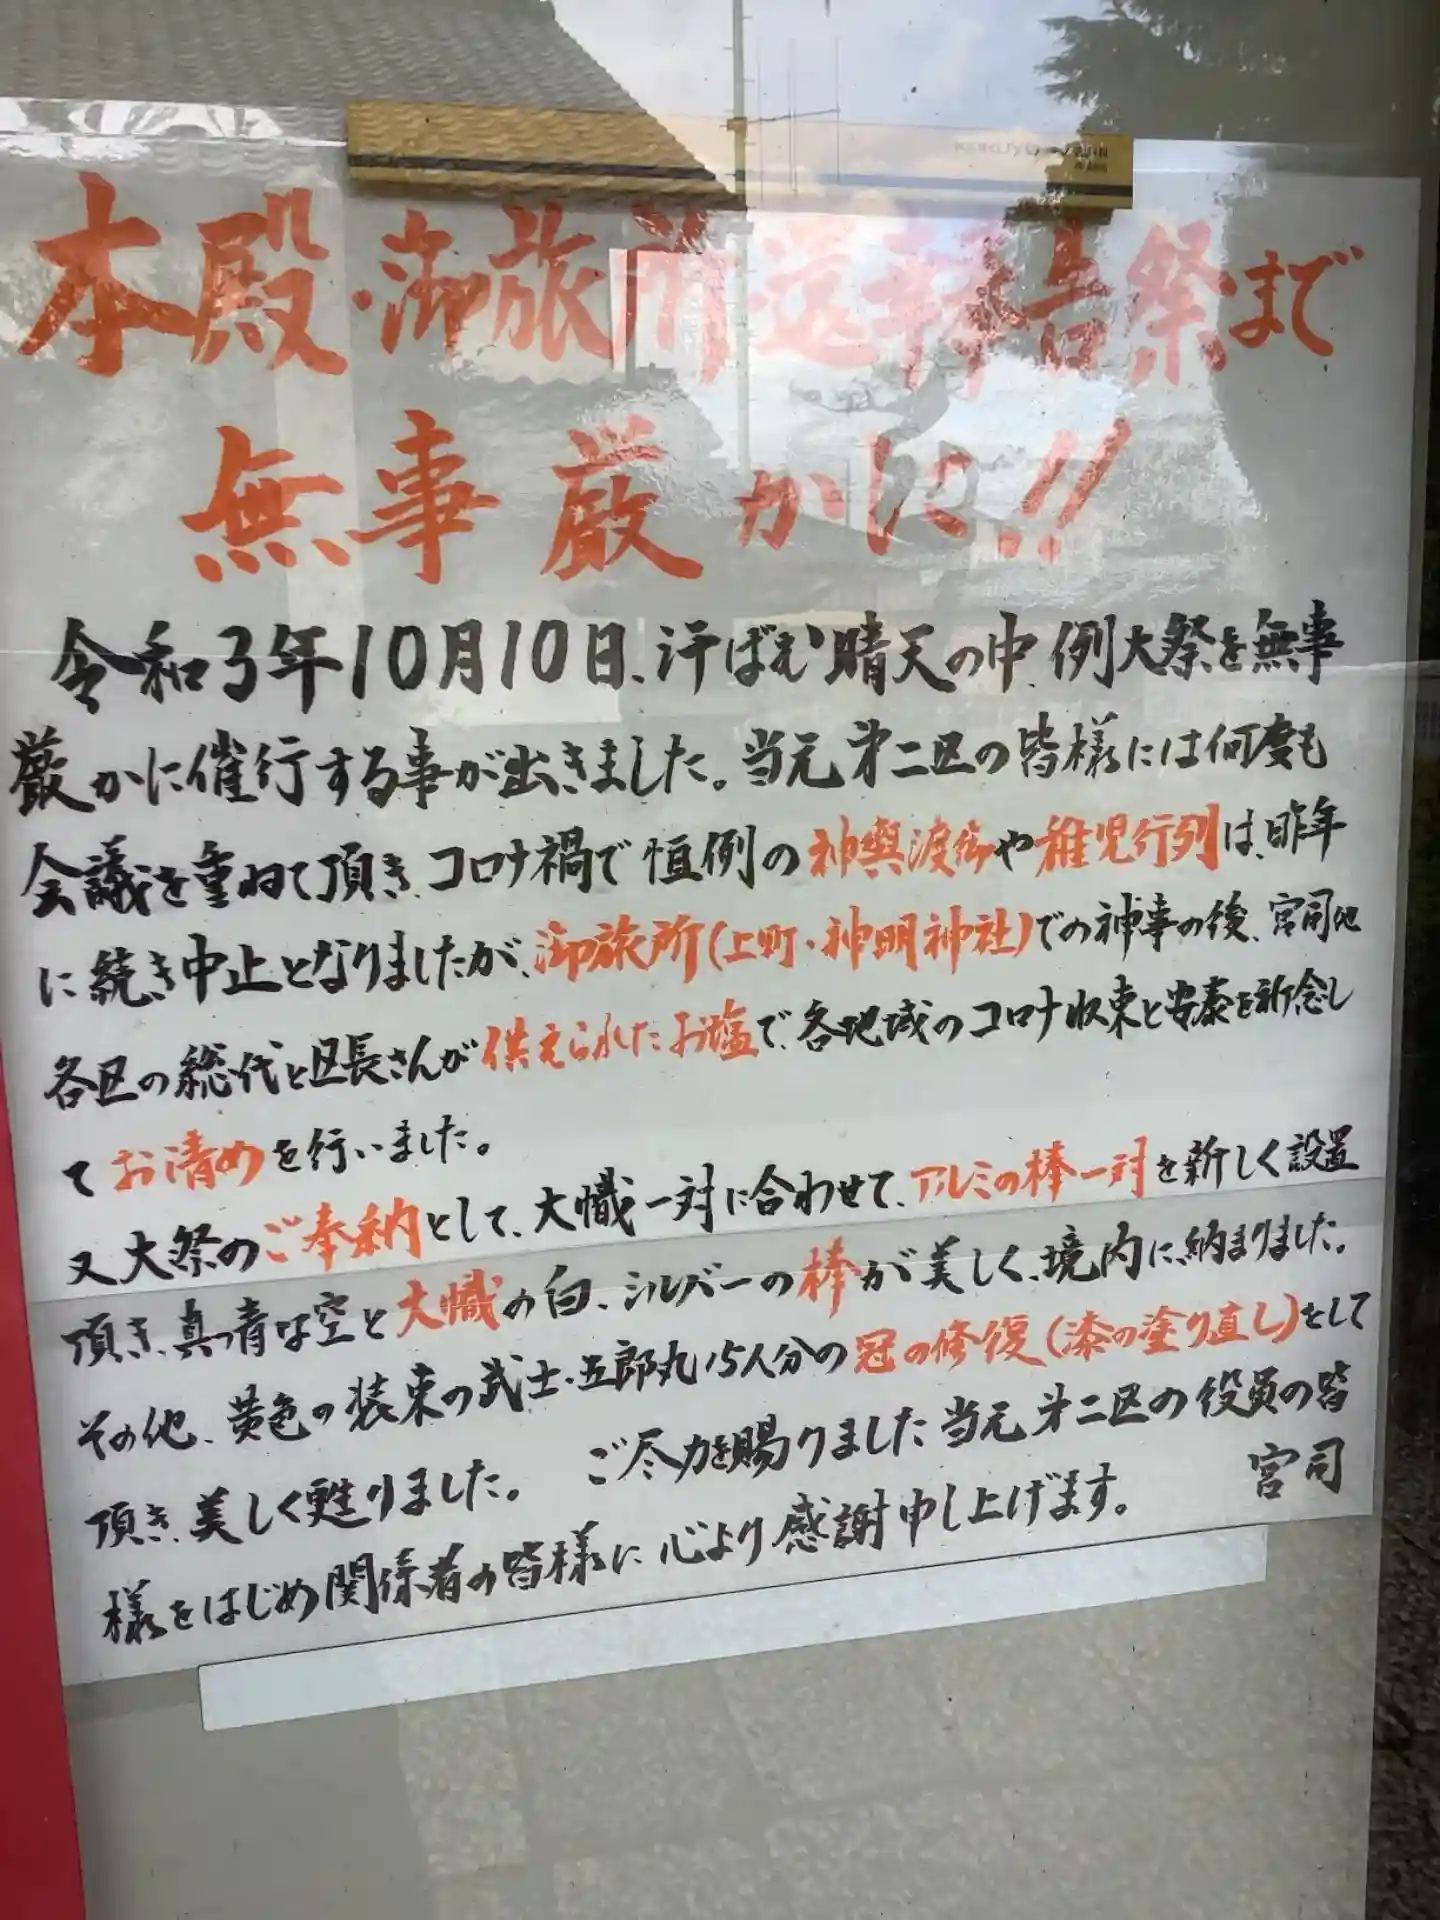 KOKUYO
本殿・御旅所 還幸告祭まで
無事厳かに!!
令和3年10月10日、汗ばむ晴天の中、例大祭を無事
厳かに催行する事が出きました。当元第二区の皆様には何度も
会議を重ねて頂き、コロナ禍で恒例の神輿渡御や稚児行列は、昨年
に続き中止となりましたが、御旅所(上町・神明神社)での神事の後、宮司他
各区の総代と区長さんが供えられたお塩で、各地域のコロナ収束と安泰を祈念し
てお清めを行いました。
又大祭のご奉納として、大幟一対に合わせて、アルミの棒一対を新しく設置
頂き、真っ青な空と大幟の白、シルバーの棒が美しく、境内に納まりました。
その他、黄色の装束の武士・五郎丸15人分の冠の修復(漆の塗り直し)をして
頂き、美しく甦りました。 ご尽力を賜りました当元第二区の役員の皆
様をはじめ関係者の皆様に心より感謝申し上げます。 宮司